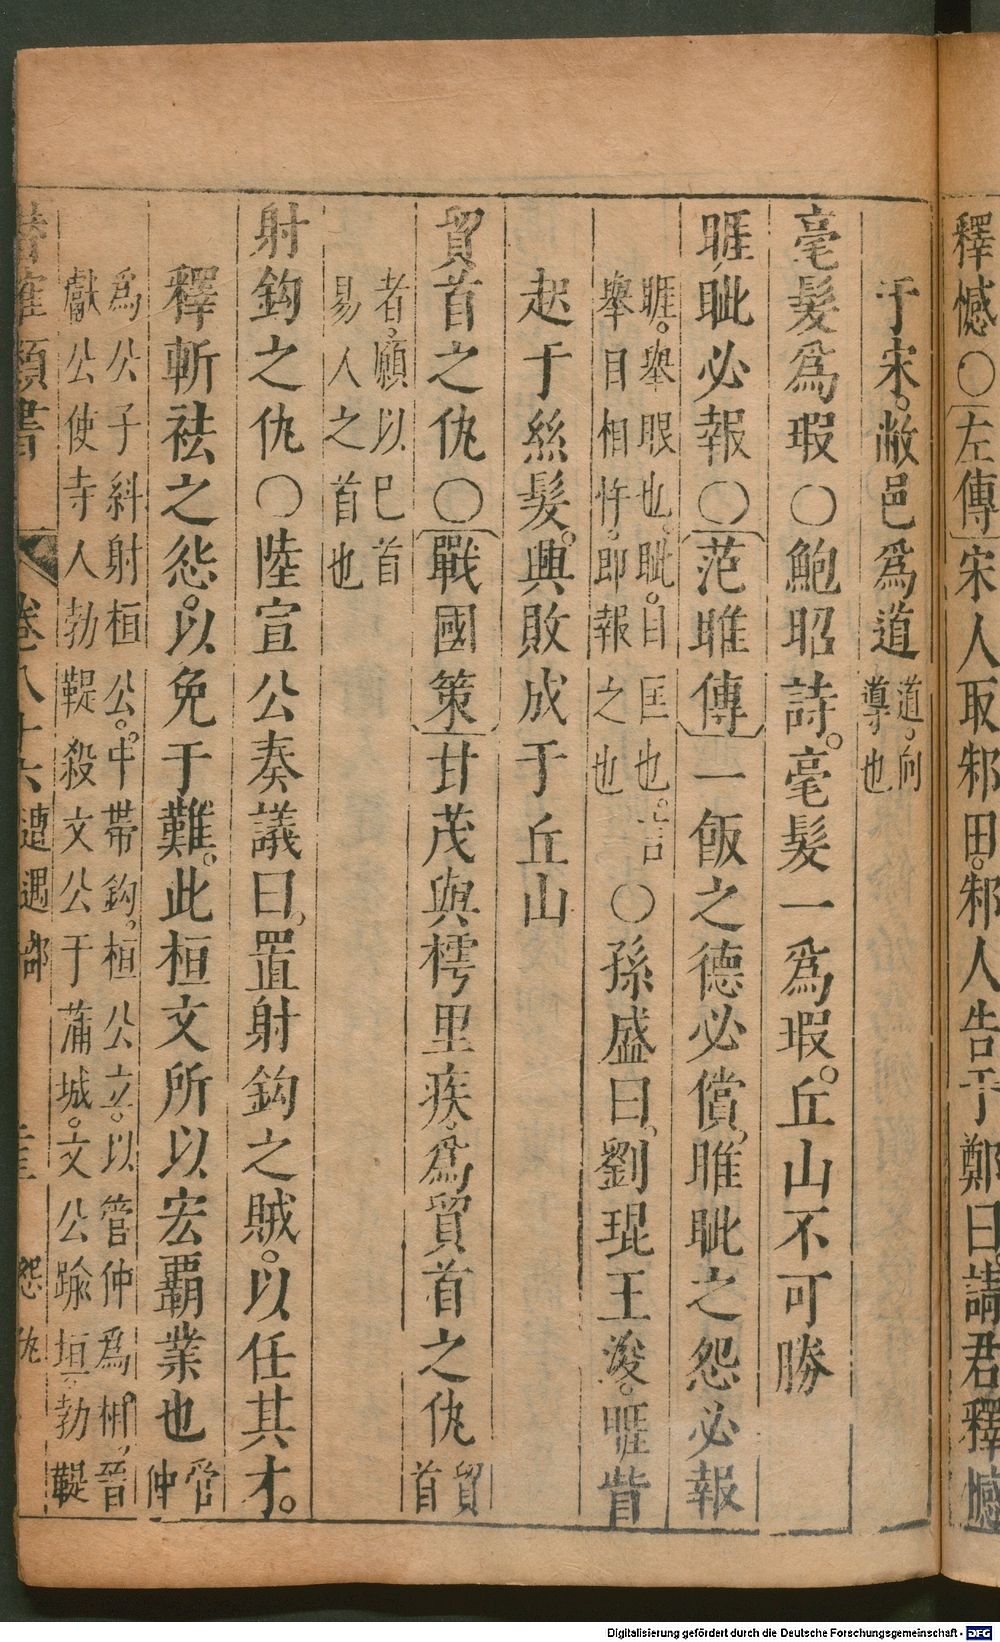 釋憾〇左傳宋人取邾田。邾人告于鄭曰。請君釋憾
于宋。敝邑爲道道。向導也
毫髮爲瑕〇鮑昭詩。毫髮一爲瑕。丘山不可勝
睚眦必報〇范雎傳一飯之德必償。睢眦之怨必報
睚。舉眼也。眦。目匡也。言
舉目相忤。卽報之也
〇孫盛曰。劉琨王浚。睚眥
起于絲髮。興敗成于丘山
貿首之仇〇戰國策甘茂與樗里疾。爲貿首之仇貿首
者。願以巳首
易人之首也
射鈎之仇〇陸宣公奏議曰。置射鈎之賊。以任其才。
釋斬袪之怨。以免于難。此桓文所以宏霸業也管仲
爲公子糾射桓公。中帶鈎。桓公立。以管仲爲相。晉
獻公使寺人勃鞮殺文公于蒲城。文公踰垣。勃鞮
潛確類書 卷八十六 遭遇部 怨仇
Digitalisierung gefördert durch die Deutsche Forschungsgemeinschaft - DFG